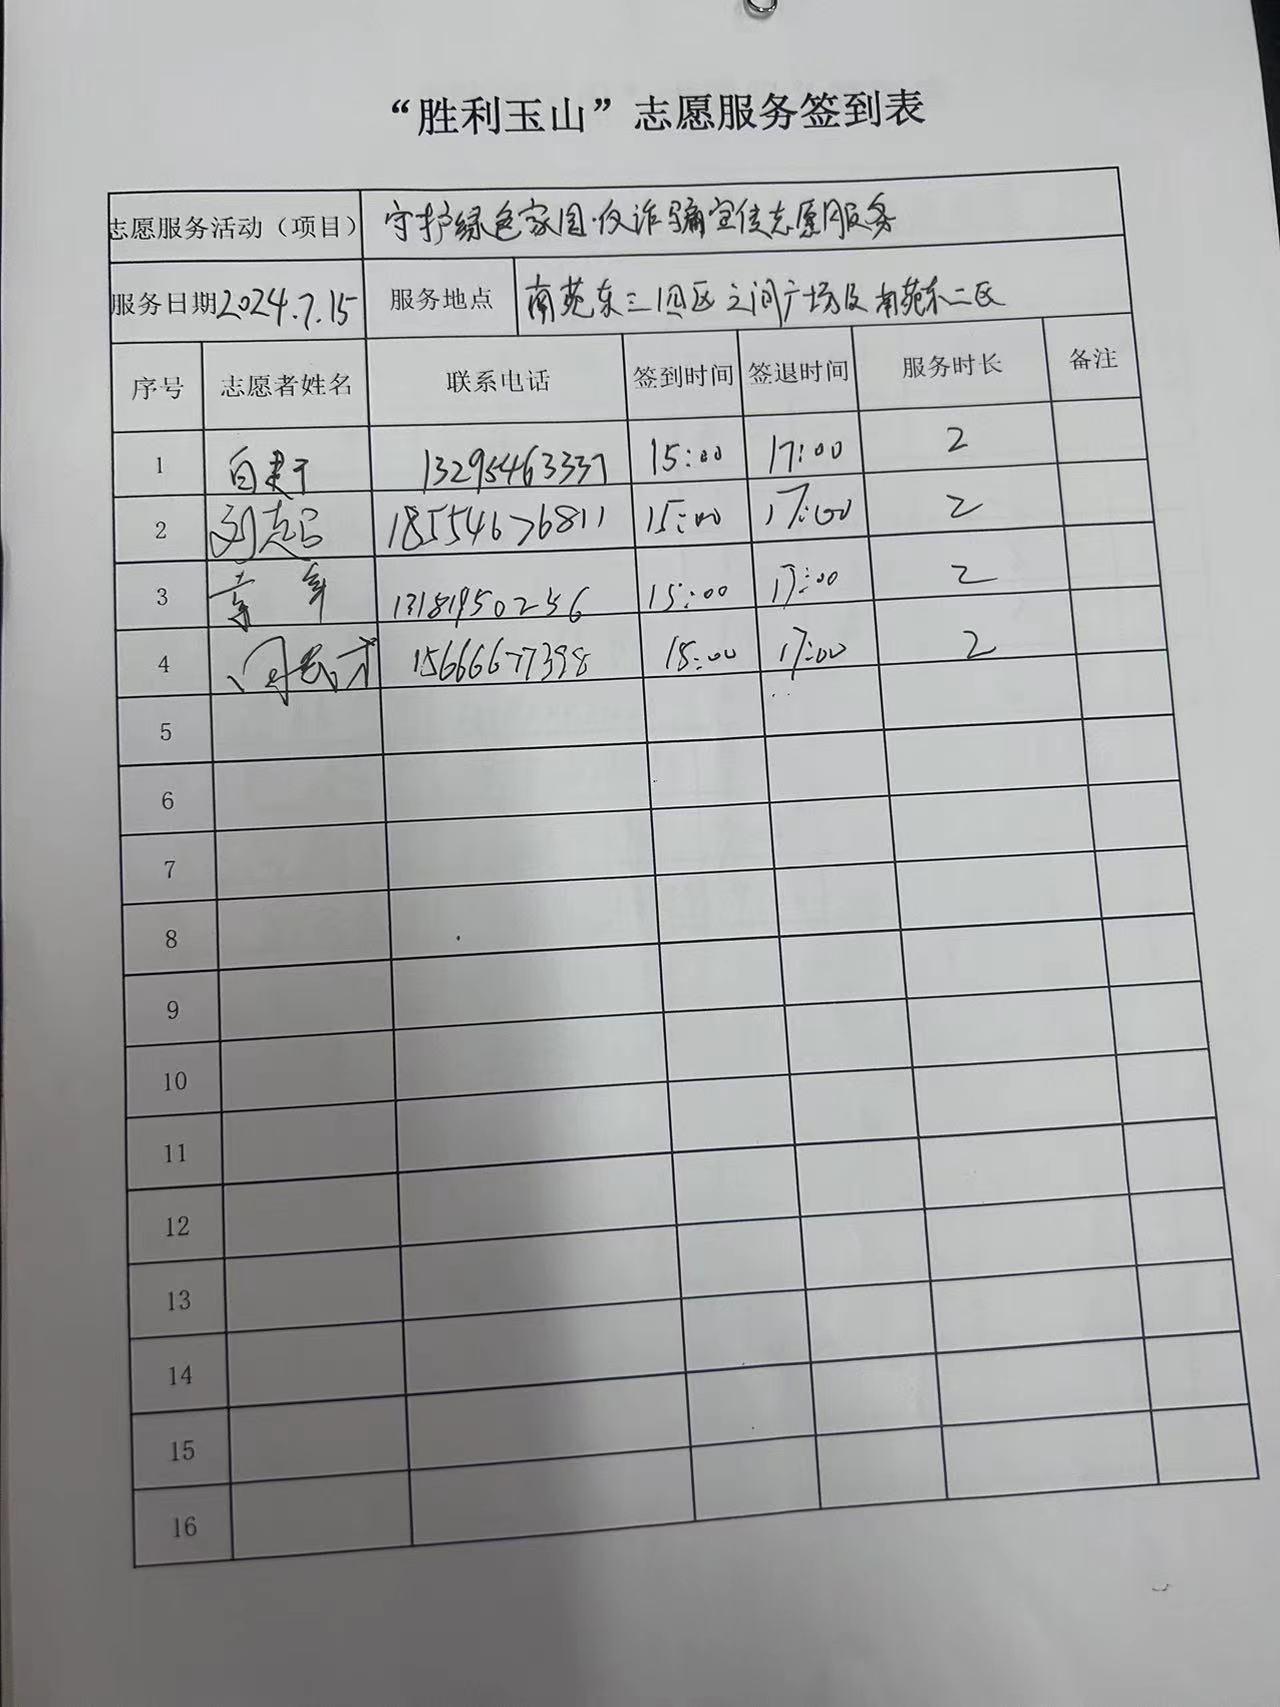 “胜利玉山”志愿服务签到表
志愿服务活动（项目） 守护绿色家园·反诈骗宣传志愿服务
服务日期 2024.7.15 服务地点 南苑东三四区之间广场及南苑东二区
序号 志愿者姓名 联系电话 签到时间 签退时间 服务时长 备注
1 13295463337 15:00 17:00 2
2 18554676811 15:00 17:00 2
3 13181950256 15:00 17:00 2
4 15666677398 15:00 17:00 2
5
6
7
8
9
10
11
12
13
14
15
16